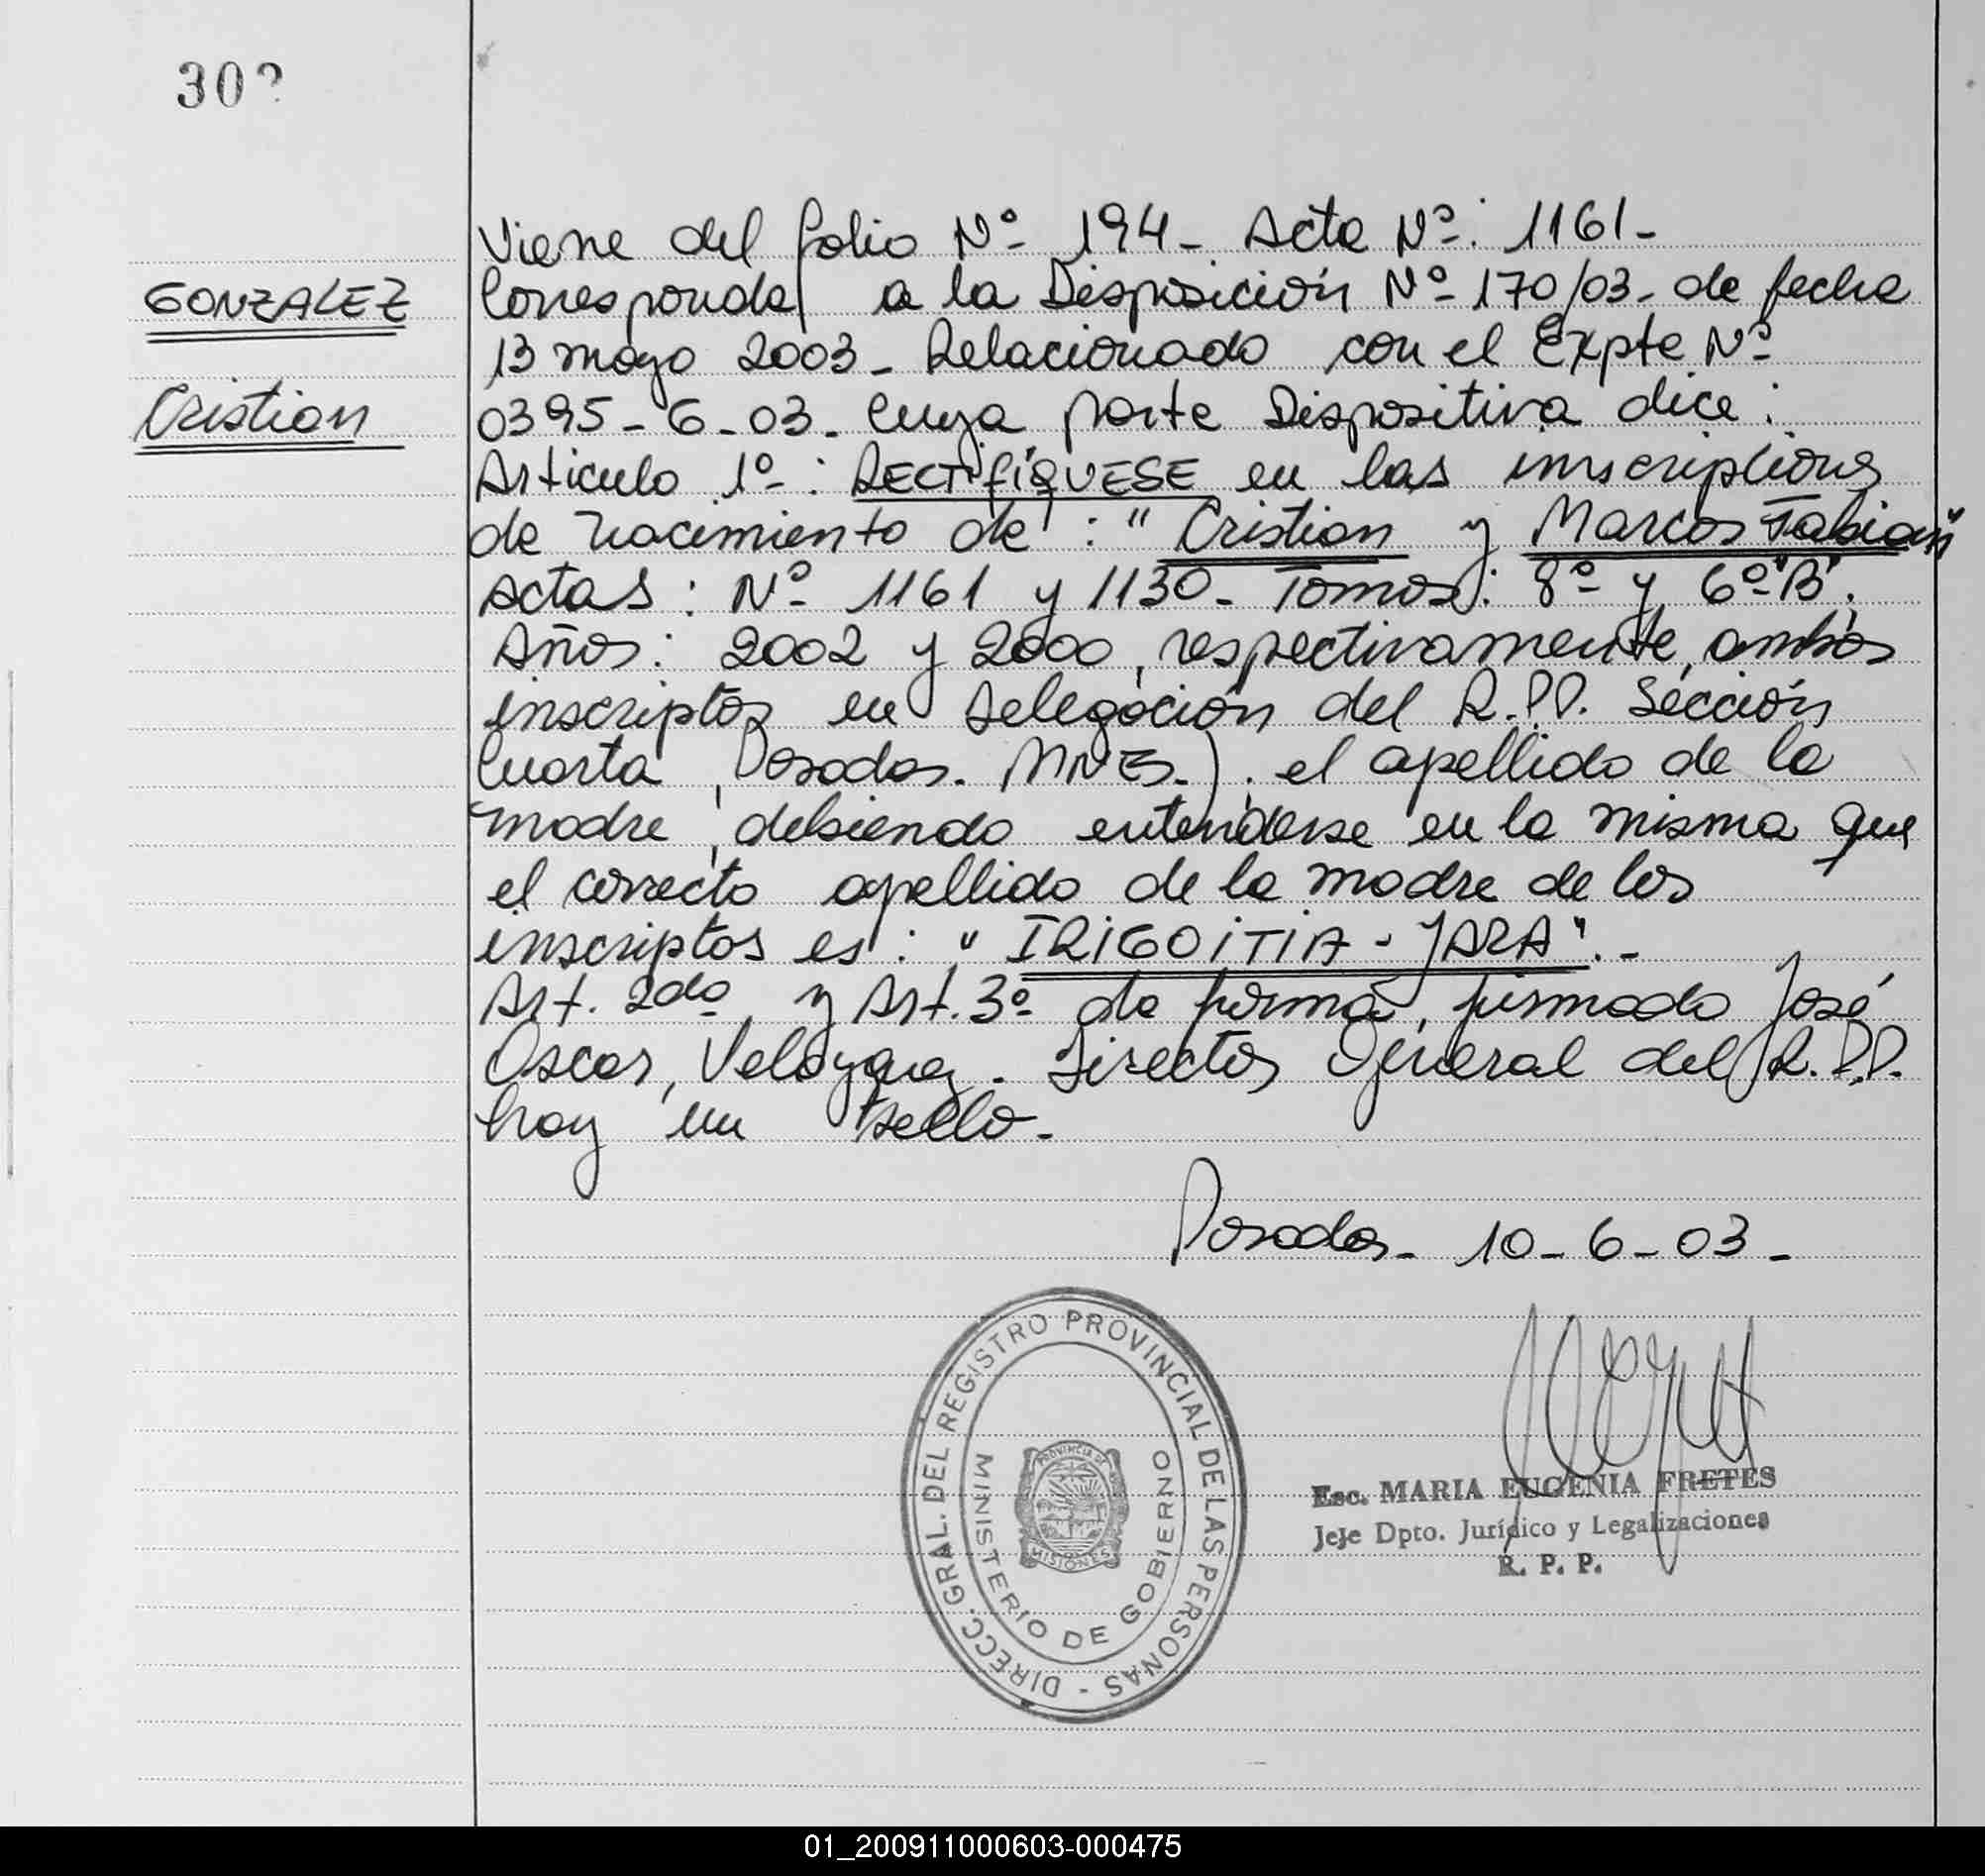 302
Viene del folio Nº 194 - Acta Nº: 1161 -
GONZALEZ
Corresponde a la Disposición Nº 170/03 - de fecha
13 mayo 2003 - Relacionado con el Expte Nº
Cristian
0395 - G - 03. Cuya parte Dispositiva dice:
Articulo 1º: RECTIFÍQUESE en las inscripciones
de nacimiento de: "Cristian y Marcos Fabian"
Actas: Nº 1161 y 1130 - Tomos: 8º y 6º "B".
Años: 2002 y 2000, respectivamente, ambos
inscriptos en Delegación del R.P.P. Sección
Cuarta, Posadas. MNES.). el apellido de la
madre, debiendo entenderse en la misma que
el correcto apellido de la madre de los
inscriptos es: "IRIGOITIA - JARA". -
Art. 2do y Art. 3º de forma, firmado José
Oscar, Velazquez. Director General del R.P.P.
hay un sello -
Posadas - 10 - 6 - 03 -
DIRECC. GRAL. DEL REGISTRO PROVINCIAL DE LAS PERSONAS -
MINISTERIO DE GOBIERNO
PROVINCIA DE
MISIONES
Esc. MARIA EUGENIA FRETES
Jefe Dpto. Jurídico y Legalizaciones
R. P. P.
01_200911000603-000475